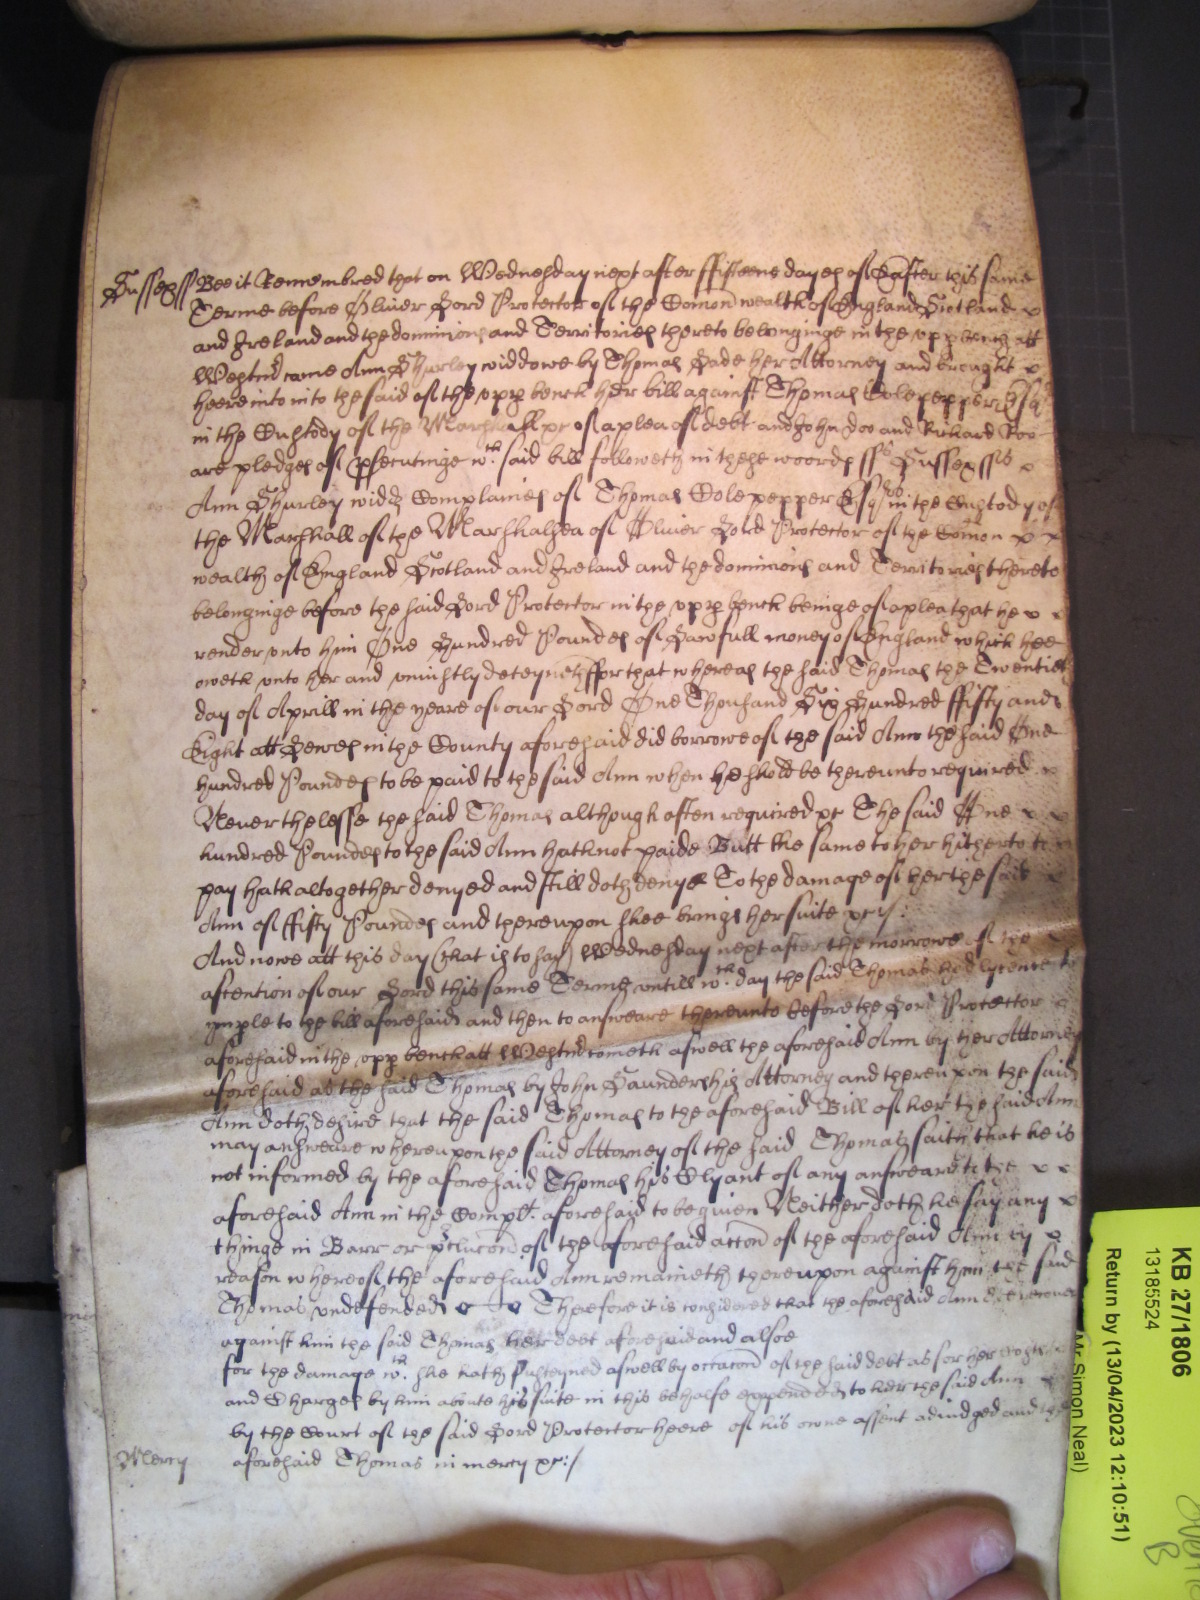 Sussex ss Bee it Remembred that on Wednesday next after ffifteene dayes of Easter this same
Terme before Oliver Lord Protector of the Comon wealth of England Scotland
and Ireland and the dominions and Territories thereto belonginge in the upp bench att
Westmr came Ann Shurley widdowe by Thomas Dade her Attorney and brought
heere into into the said of the upp bench her bill against Thomas Colepepper Esqr
in the Custody of the Marshall &c of a plea of debt and John Doo and Richard Roo
are pledges of psecutinge wch said bill followeth in these woords ss Sussex ss
Ann Shurley widd Complaines of Thomas Colepepper Esqr in the Custody of
the Marshall of the Marshalsea of Oliver Lord Protector of the Comon
wealth of England Scotland and Ireland and the dominions and Territories thereto
belonginge before the said Lord Protector in the upp bench beinge of a plea that he
render unto him One Hundred Poundes of Lawfull money of England which hee
oweth unto her and uniustly deteyneth ffor that whereas the said Thomas the Twentieth
day of Aprill in the yeare of our Lord One Thousand Six Hundred ffifty and
Eight att Lewes in the County aforesaid did borrowe of the said Ann the said One
hundred Poundes to be paid to the said Ann when he should be thereunto required
Never thelesse the said Thomas although often required &c The said One
hundred Poundes to the said Ann hath not paide Butt the same to her hitherto to
pay hath altogether denyed and still doth denye To the damage of her the said
Ann of ffifty Poundes and thereupon shee brings her suite &c
And nowe att this day (that is to say) Wednesday next after the morrowe of the
assention of our Lord this same Terme untill wch day the said Thomas had lycence to
imple to the bill aforesaid and then to answeare thereunto before the Lord Protector
aforesaid in the upp bench att Westmr cometh aswell the aforesaid Ann by her Attorney
aforesaid as the said Thomas by John Saunders his Attorney and thereupon the said
Ann doth desire that the said Thomas to the aforesaid Bill of her the said Ann
may answeare whereupon the said Attorney of the said Thomas saith that he is
not informed by the aforesaid Thomas his Clyant of any answeare to the
aforesaid Ann in the Complt aforesaid to be given Neither doth he say any
thinge in Barr or pclucon of the aforesaid accon of the aforesaid Ann by
reason whereof the aforesaid Ann remaineth thereupon against him the said
Thomas undefended Therefore it is considered that the aforesaid Ann doe recover
against him the said Thomas her debt aforesaid and alsoe
for the damage wch she hath susteyned aswell by occacon of the said debt as for her costs
and Charges by him aboute his suite in this behalfe expended to her the said Ann
by the Court of the said Lord Protector heere of his owne assent adiudged and the
Mercy aforesaid Thomas in mercy &c
KB 27/1806
13185524
Return by (13/04/2023 12:10:51)
Mr Simon Neal)